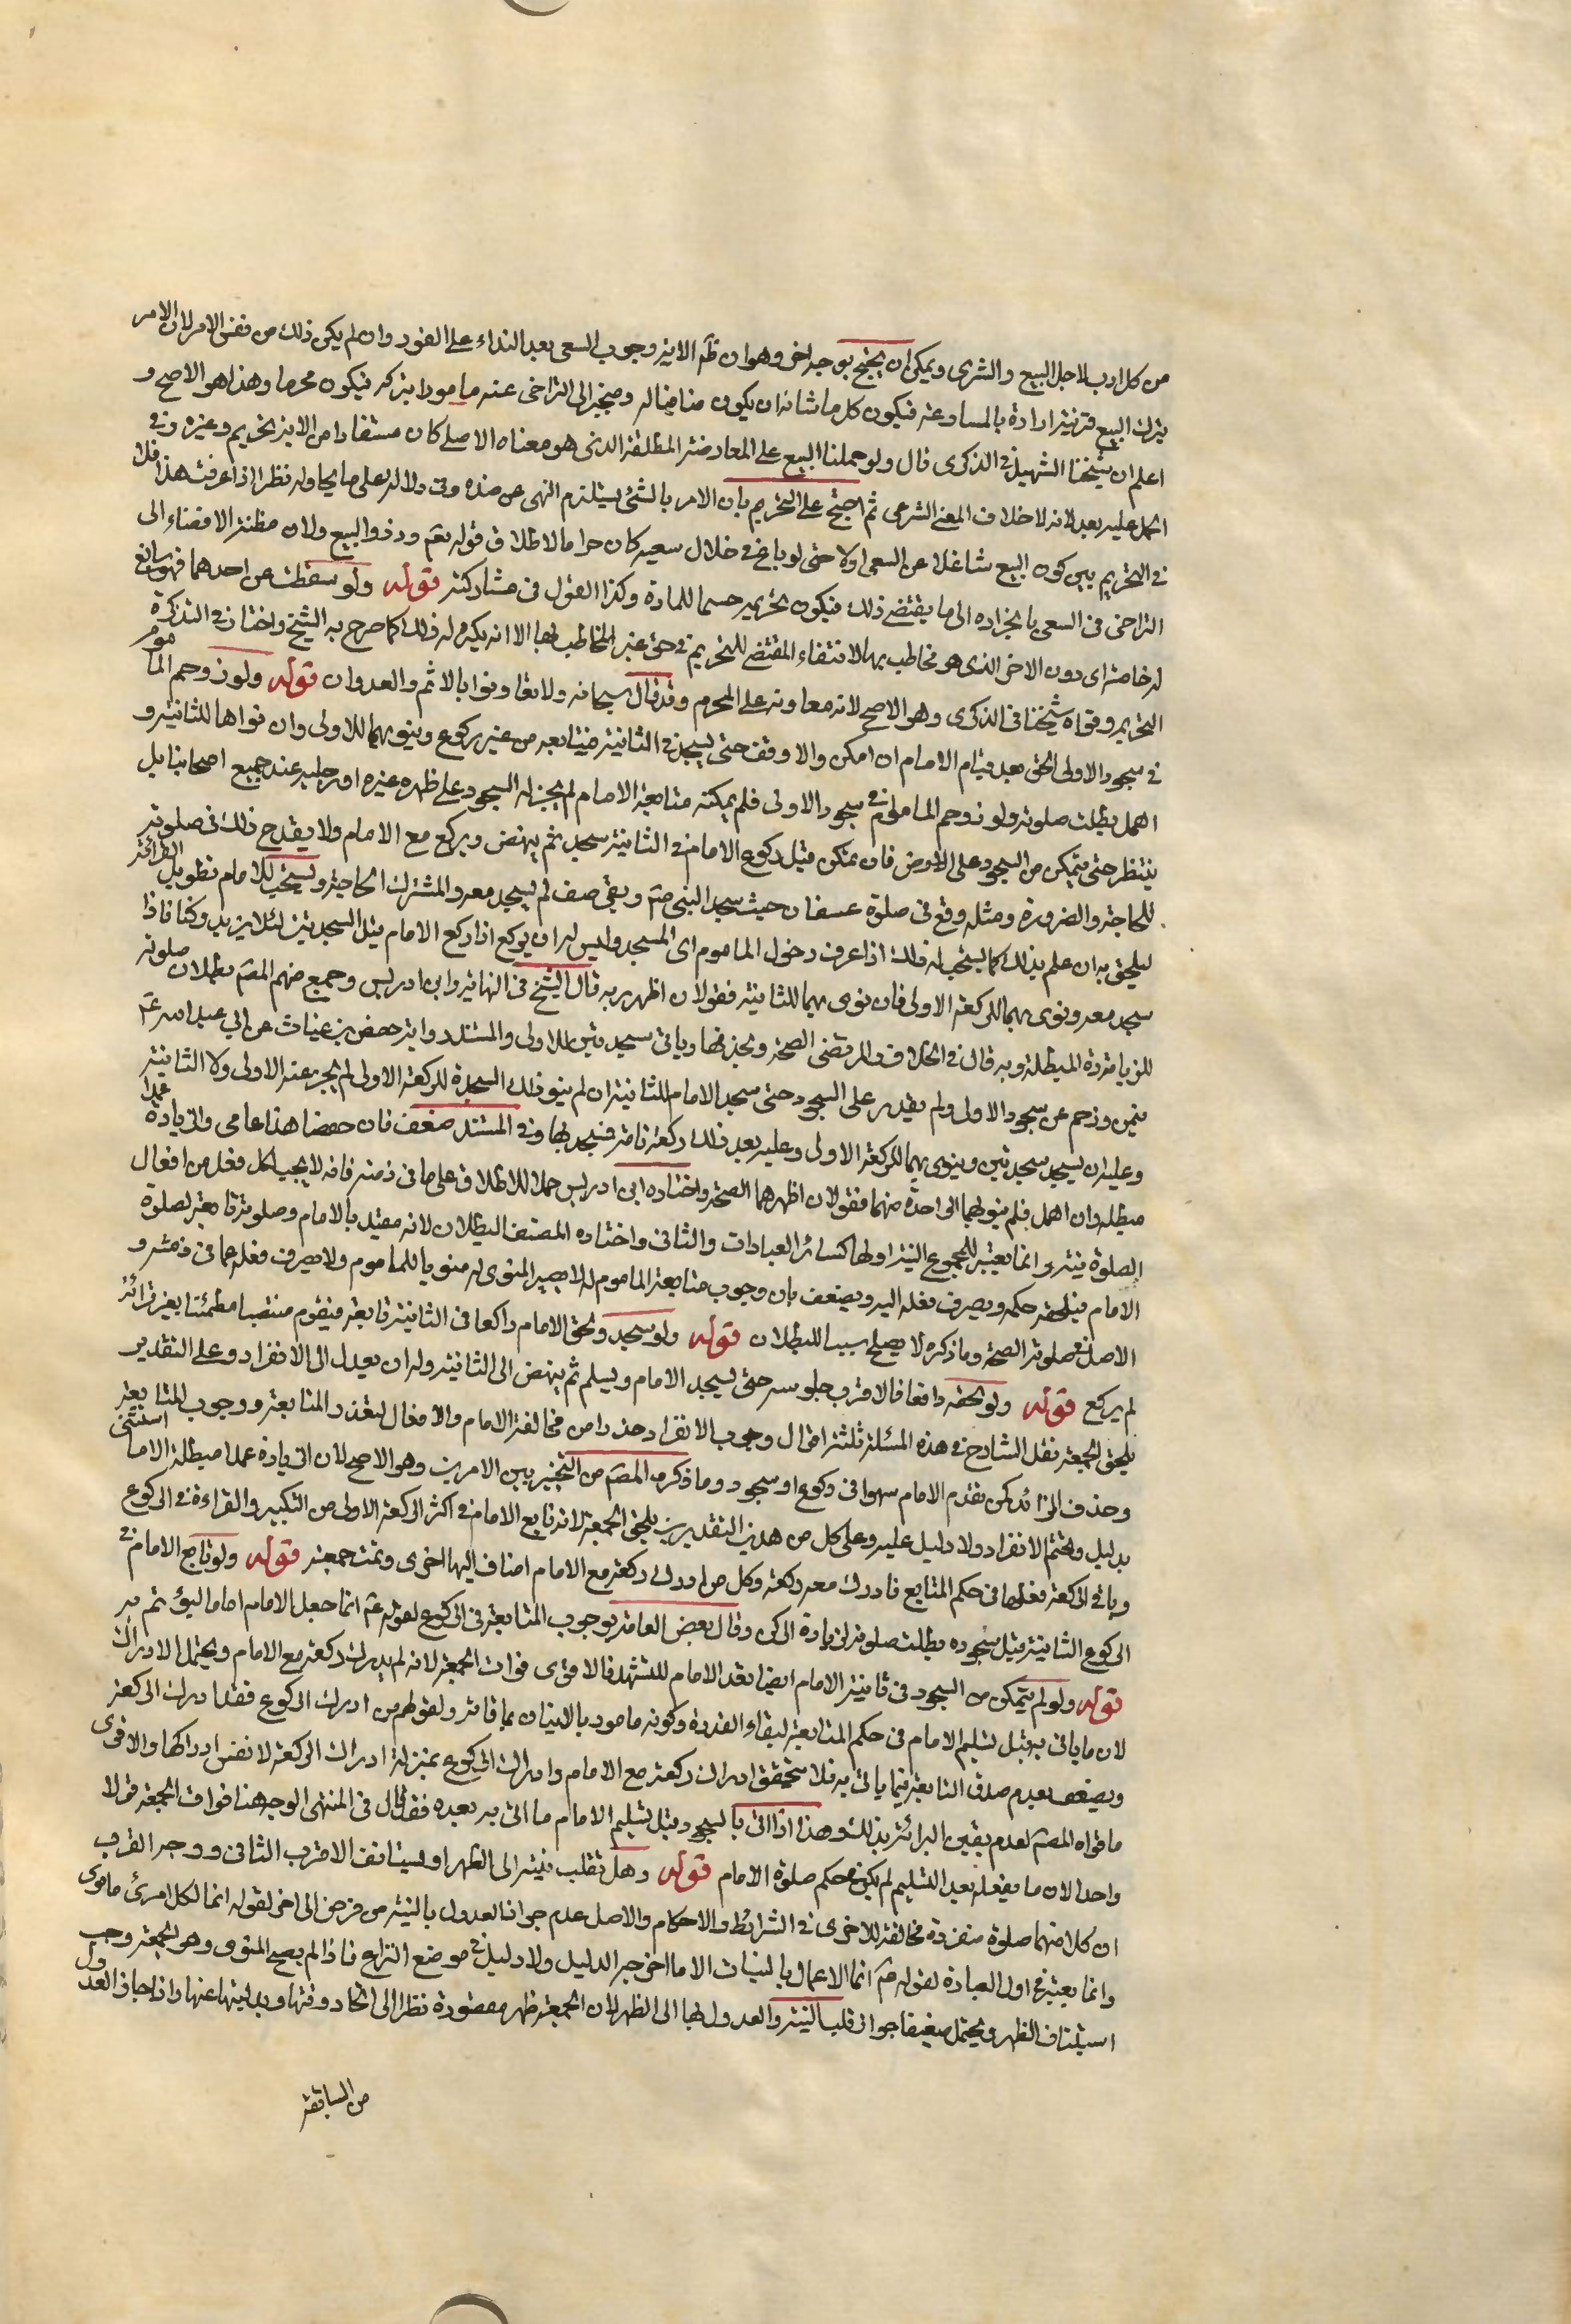 من كل ادب لاجل البيع والشرى ويمكن ان يحتج بوجه اخر وهو ان ظم الاية وجوب السعى بعد النداء على الفور وان لم يكن ذلك من نفس الامر لان الامر
بترك البيع قرنية ارادة بالمسارعة فيكون كل ما شانه ان يكون منافيا له ومنجرا الى التراخى عنه مامورا بتركه فيكون محرما وهذا هو الاصح و
اعلم ان شيخنا الشهيد فى الذكرى قال ولو حملنا البيع على المعاوضة المطلقة الذى هو معناه الاصلى كان مستفادا من الاية تحريم وغيره وفى
الحمل عليه بعد لانه لا خلاف المعنى الشرعى ثم احتج على التحريم بان الامر بالشئ يستلزم النهى عن ضده وفى دلالته على ما يحاوله نظر اذا عرفت هذا فلا
فى التحريم بين كون البيع شاغلا عن السعى اولا حتى لو باع فى خلال سعيه كان حراما لاطلاق قوله تعم وذروا البيع ولان مظنة الافضاء الى
التراخى فى السعى بانجراره الى ما يقتضى ذلك فيكون تحريمه حسما للمادة وكذا القول فى مشاركته قوله ولو سقطت عن احدهما فهو سائغ
له خاصة اى دون الاخر الذى هو مخاطب بها لانتفاء المقتضى للتحريم فى حق غير المخاطب بها الا انه يكره له ذلك كما صرح به الشيخ واختار فى التذكرة
التحريم وقواه شيخنا فى الذكرى وهو الاصح لانه معاونة على المحرم وقد قال سبحانه ولا تعاونوا بالاثم والعدوان قوله ولو زوحم المأموم
فى سجود الاولى لحق بعد قيام الامام ان امكن والا وقف حتى يسجد فى الثانية فيتابعه من غير ركوع وينويهما للاولى وان نواها للثانية و
اهمل بطلت صلوته ولو زوحم الماموم فى سجود الاولى فلم يمكنه متابعة الامام لم يجز له السجود على ظهره غيره او رجليه عند جميع اصحابنا بل
ينتظر حتى يتمكن من السجود على الارض فان تمكن قبل ركوع الامام فى الثانية سجد ثم ينهض ويركع مع الامام ولا يقدح ذلك فى صلوته
للحاجة والضرورة ومثله وقع فى صلوة عسفان حيث سجد النبى صم وبقى صف لم يسجد معه والمشترك الحاجة ويستحب للامام تطويل القرائة
ليلحق به ان علم بذلك كما يستحب له ذلك اذا عرف دخول الماموم اى المسجد وليس له ان يركع اذا ركع الامام قبل السجدتين لئلا يزيد وكنا فاذا
سجد معه ونوى بهما للركعة الاولى فان نوى بهما للثانية فقولان اظهر به قال الشيخ فى النهاية وابن ادريس وجمع منهم المصم بطلان صلوته
للزيادة المبطلة وبه قال فى الخلاف والمرتضى الصحة ويحذفها وياتى سجدتين للاولى والمستند رواية حفص بن غياث عن ابى عبد الله عم
فيمن زحم عن سجود الاولى ولم يقدر على السجود حتى سجد الامام للثانية ان لم ينو ذلك السجدة للركعة الاولى لم يجز عنه الاولى ولا الثانية
وعليه ان يسجد سجدتين وينوى بهما للركعة الاولى وعليه بعد ذلك ركعة تامة فيسجد بها وفى المستند ضعف فان حفصا هذا عامى والزيادة عمدا
مبطلة وان اهمل فلم ينو بهما الى واحدة منهما فقولان اظهرهما الصحة واختاره ابن ادريس حملا للاطلاق على ما فى ذمته فانه لا يجب لكل فعل من افعال
الصلوة نية وانما يعتبر للمجموع النية اولها كسائر العبادات والثانى واختاره المصنف البطلان لانه مقتد بالامام وصلوته تابعة لصلوة
الامام فيلحقه حكمه ويصرف فعله اليه ويضعف بان وجوب متابعة الماموم له لا يصير المنوى له منويا للماموم ولا يصرف فعله عما فى ذمته و
الاصل فى صلوته الصحة وما ذكره لا يصلح سببا للبطلان قوله ولو سجد ولحق الامام راكعا فى الثانية تابعه فيقوم منتصبا مطمئنا بغير قرائة
لم يركع قوله ولو لحقه رافعا فالاقرب جلوسه حتى يسجد الامام ويسلم ثم ينهض الى الثانية وله ان يعدل الى الانفراد وعلى التقدير
يلحق الجمعة نقل الشارح فى هذه المسئلة ثلثة اقوال وجوب الانفراد حذرا من مخالفة الامام والافعال لتعذر المتابعة ووجوب المتابعة
وحذف الزائد كمن تقدم الامام سهوا فى ركوع او سجود وما ذكره المصم من التخيير بين الامرين وهو الاصح لان الزيادة عمدا مبطلة الا ما استثنى
بدليل وتحتم الانفراد ولا دليل عليه وعلى كل من هذين التقديرين يلحق الجمعة لانه تابع الامام فى اكثر الركعة الاولى من التكبير والقراءة فى الركوع
وباقى الركعة فعلها فى حكم المتابع فادرك معه ركعة وكل من ادرك ركعة مع الامام اضاف اليها اخرى وتمت جمعته قوله ولو تابع الامام فى
الركوع الثانية قبل سجوده بطلت صلوته لزيادة الركن وقال بعض العامة بوجوب المتابعة فى الركوع لقوله عم انما جعل الامام اماما ليؤتم به
قوله ولو لم يتمكن من السجود فى ثانية الامام ايضا تعد الامام للتشهد فالاقوى فوات الجمعة لانه لم يدرك ركعة مع الامام ويحتمل الادراك
لان ما ياتى به قبل تسليم الامام فى حكم المتابعة لبقاء القدوة وكونه مامور بالاتيان بما فاته ولقولهم من ادرك الركوع فقد ادرك الركعة
ويضعف بعدم صدق التابعة فيما ياتى به فلا يتحقق ادراك ركعة مع الامام وادراك الركوع بمنزلة ادراك الركعة لا نفس ادراكها والاقوى
ما قواه المصم لعدم يقين البرائة بذلك وهذا اذا اتى بالسجود قبل تسليم الامام ما اتى به بعده فقد قال فى المنتهى الوجه هنا فوات الجمعة قولا
واحدا لان ما يفعله بعد التسليم لم يكن فى حكم صلوة الامام قوله وهل تقلب نيته الى الظهر او يستانف الاقرب الثانى ووجه القرب
ان كلا منهما صلوة منفردة مخالفة للاخرى فى الشرائط والاحكام والاصل عدم جواز العدول بالنية من فرض الى اخر لقوله انما لكل امرئ ما نوى
وانما يعتبر فى اول العبادة لقوله صم انما الاعمال بالنيات الا ما اخرجه الدليل ولا دليل فى موضع النزاع فاذا لم يصح المنوى وهو الجمعة وجب
استيناف الظهر ويحتمل ضعيفا جواز قلب النية والعدول بها الى الظهر لان الجمعة ظهر مقصورة نظرا الى اتحاد وقتها وبدليتها عنها واذا جاز العدول
من السابقة